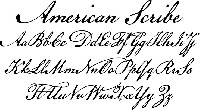 American Scribe
Aa Bb Cc Dd Ee Ff Gg Hh Ii Jj
Kk Ll Mm Nn Oo Pp Qq Rr Ss
Tt Uu Vv Ww Xx Yy Zz